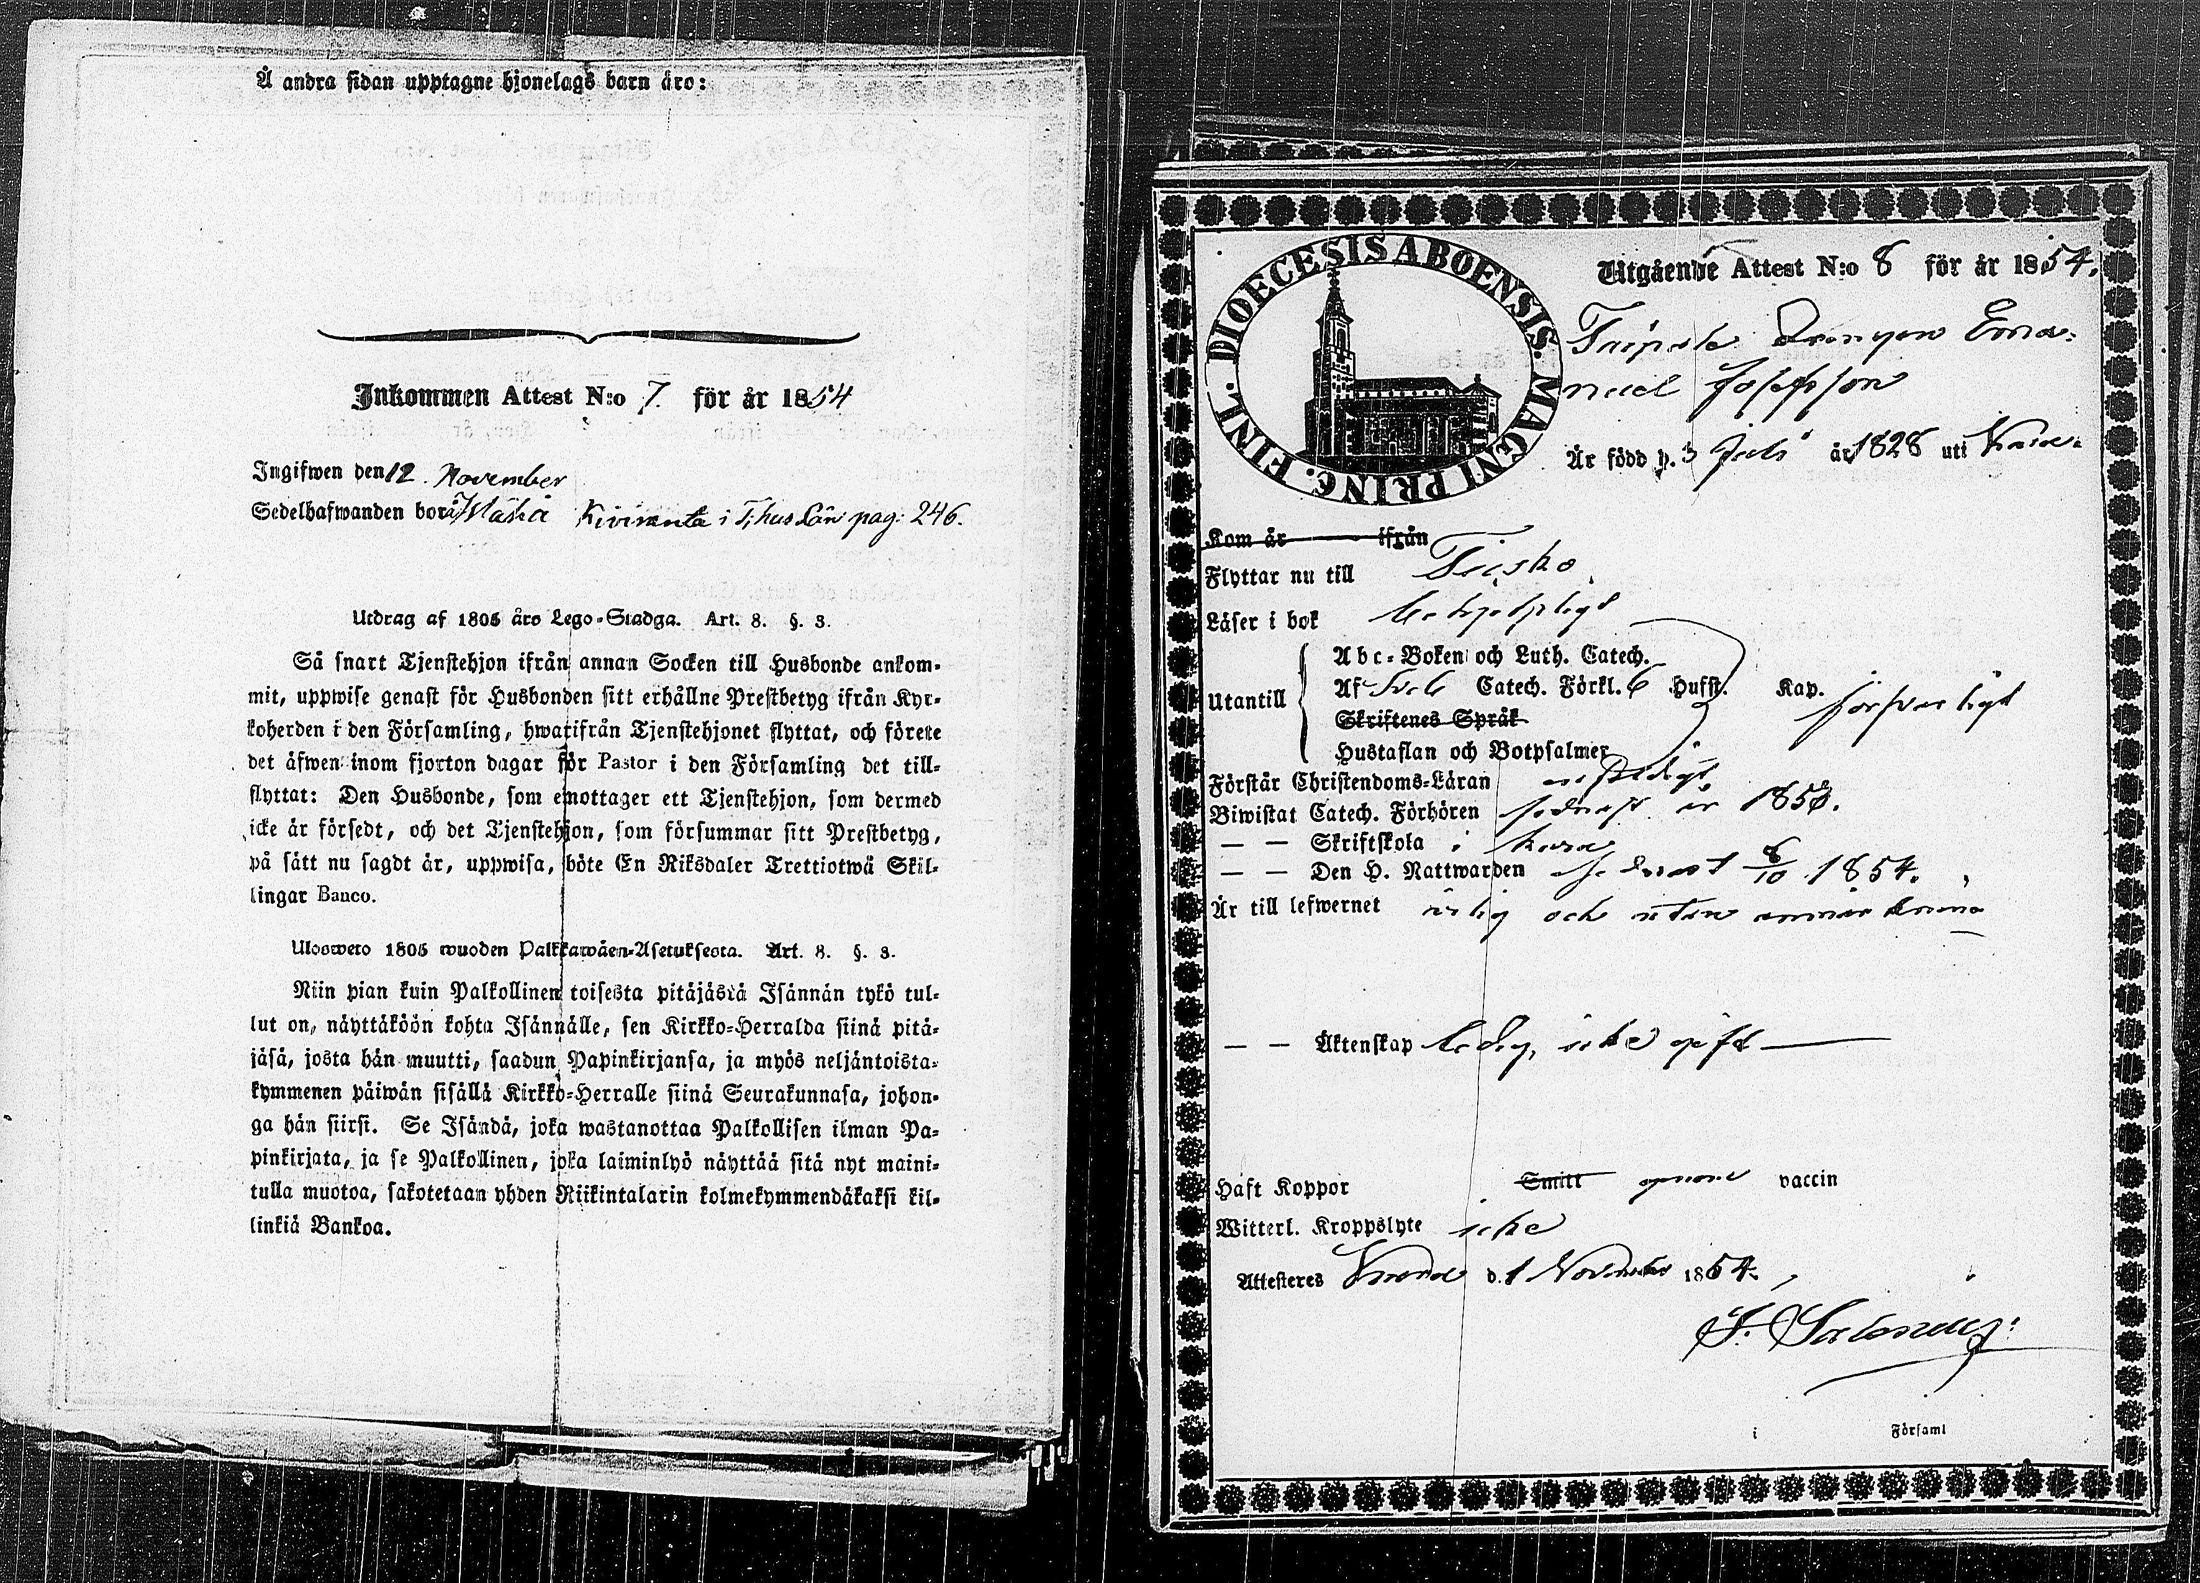 Å andra sidan upptagne hjonelags barn äro:
Inkommen Attest N:o 7. för år 1854
Ingifwen den 12. November
Sedelhafwanden bor å Kiviranta i pag: 246.
Utdrag af 1805 års Lego-Stadga. Art. 8. §. 3.
Så snart Tjenstehjon ifrån annan Socken till Husbonde ankom-
mit, uppwise genast för Husbonden sitt erhållne Prestbetyg ifrån Kyr-
koherden i den Församling, hwarifrån Tjenstehjonet flyttat, och förete
det äfwen inom fjorton dagar för Pastor i den Församling det till-
flyttat: Den Husbonde, som emottager ett Tjenstehjon, som dermed
icke är försedt, och det Tjenstehjon, som försummar sitt Prestbetyg,
på sätt nu sagdt är, uppwisa, böte En Riksdaler Trettiotwå Skil-
lingar Banco.
Ulosweto 1805 wuoden Palkkawäen-Asetuksesta. Art. 8. §. 3.
Niin pian kuin Palkollinen toisesta pitäjästä Isännän tykö tul-
lut on, näyttäköön kohta Isännälle, sen Kirkko-Herralda siinä pitä-
jäsä, josta hän muutti, saadun Papinkirjansa, ja myös neljäntoista-
kymmenen päiwän sisällä Kirkko-Herralle siinä Seurakunnasa, johon-
ga hän siirsi. Se Isändä, joka wastanottaa Palkollisen ilman Pa-
pinkirjata, ja se Palkollinen, joka laiminlyö näyttää sitä nyt maini-
tulla muotoa, sakotetaan yhden Riikintalarin kolmekymmendäkaksi kil-
linkiä Bankoa.
DIOECESIS ABOENSIS. MAGNI PRINC. FINL.
Utgående Attest N:o 8 för år 1854.
Drengen Ema-
nuel Josefsson
Är född d. 3 Juli år 1828 uti
Kom år ifrån
Flyttar nu till Teisko
Läser i bok
Utantill
Abc-Boken och Luth. Catech.
Af Sveb. Catech. Förkl. 6 Hufst. Kap. försvarligt
Skriftenes Språk
Hustaflan och Botpsalmer
Förstår Christendoms-Läran
Biwistat Catech. Förhören sednast år
— — Skriftskola i
— — Den H. Nattwarden sednast 8/10 1854.
Är till lefwernet ärlig och utan anmärkning
— — Äktenskap ledig, icke
Haft Koppor Smitt genom vaccin
Witterl. Kroppslyte icke
Attesteras d. 1 November 1854.
i Församl